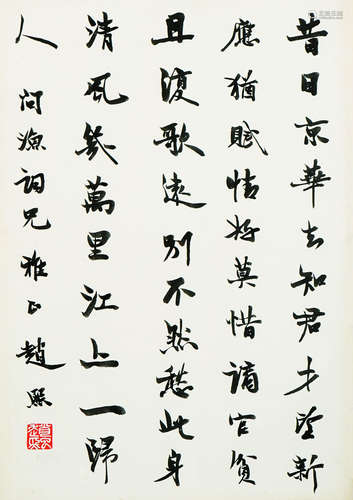 昔日京華去知君才望新
應猶賦情好莫惜謫官貧
且復歌遠別不然愁此身
清風幾萬里江上一歸
人 問漁詞兄雅正 趙熙